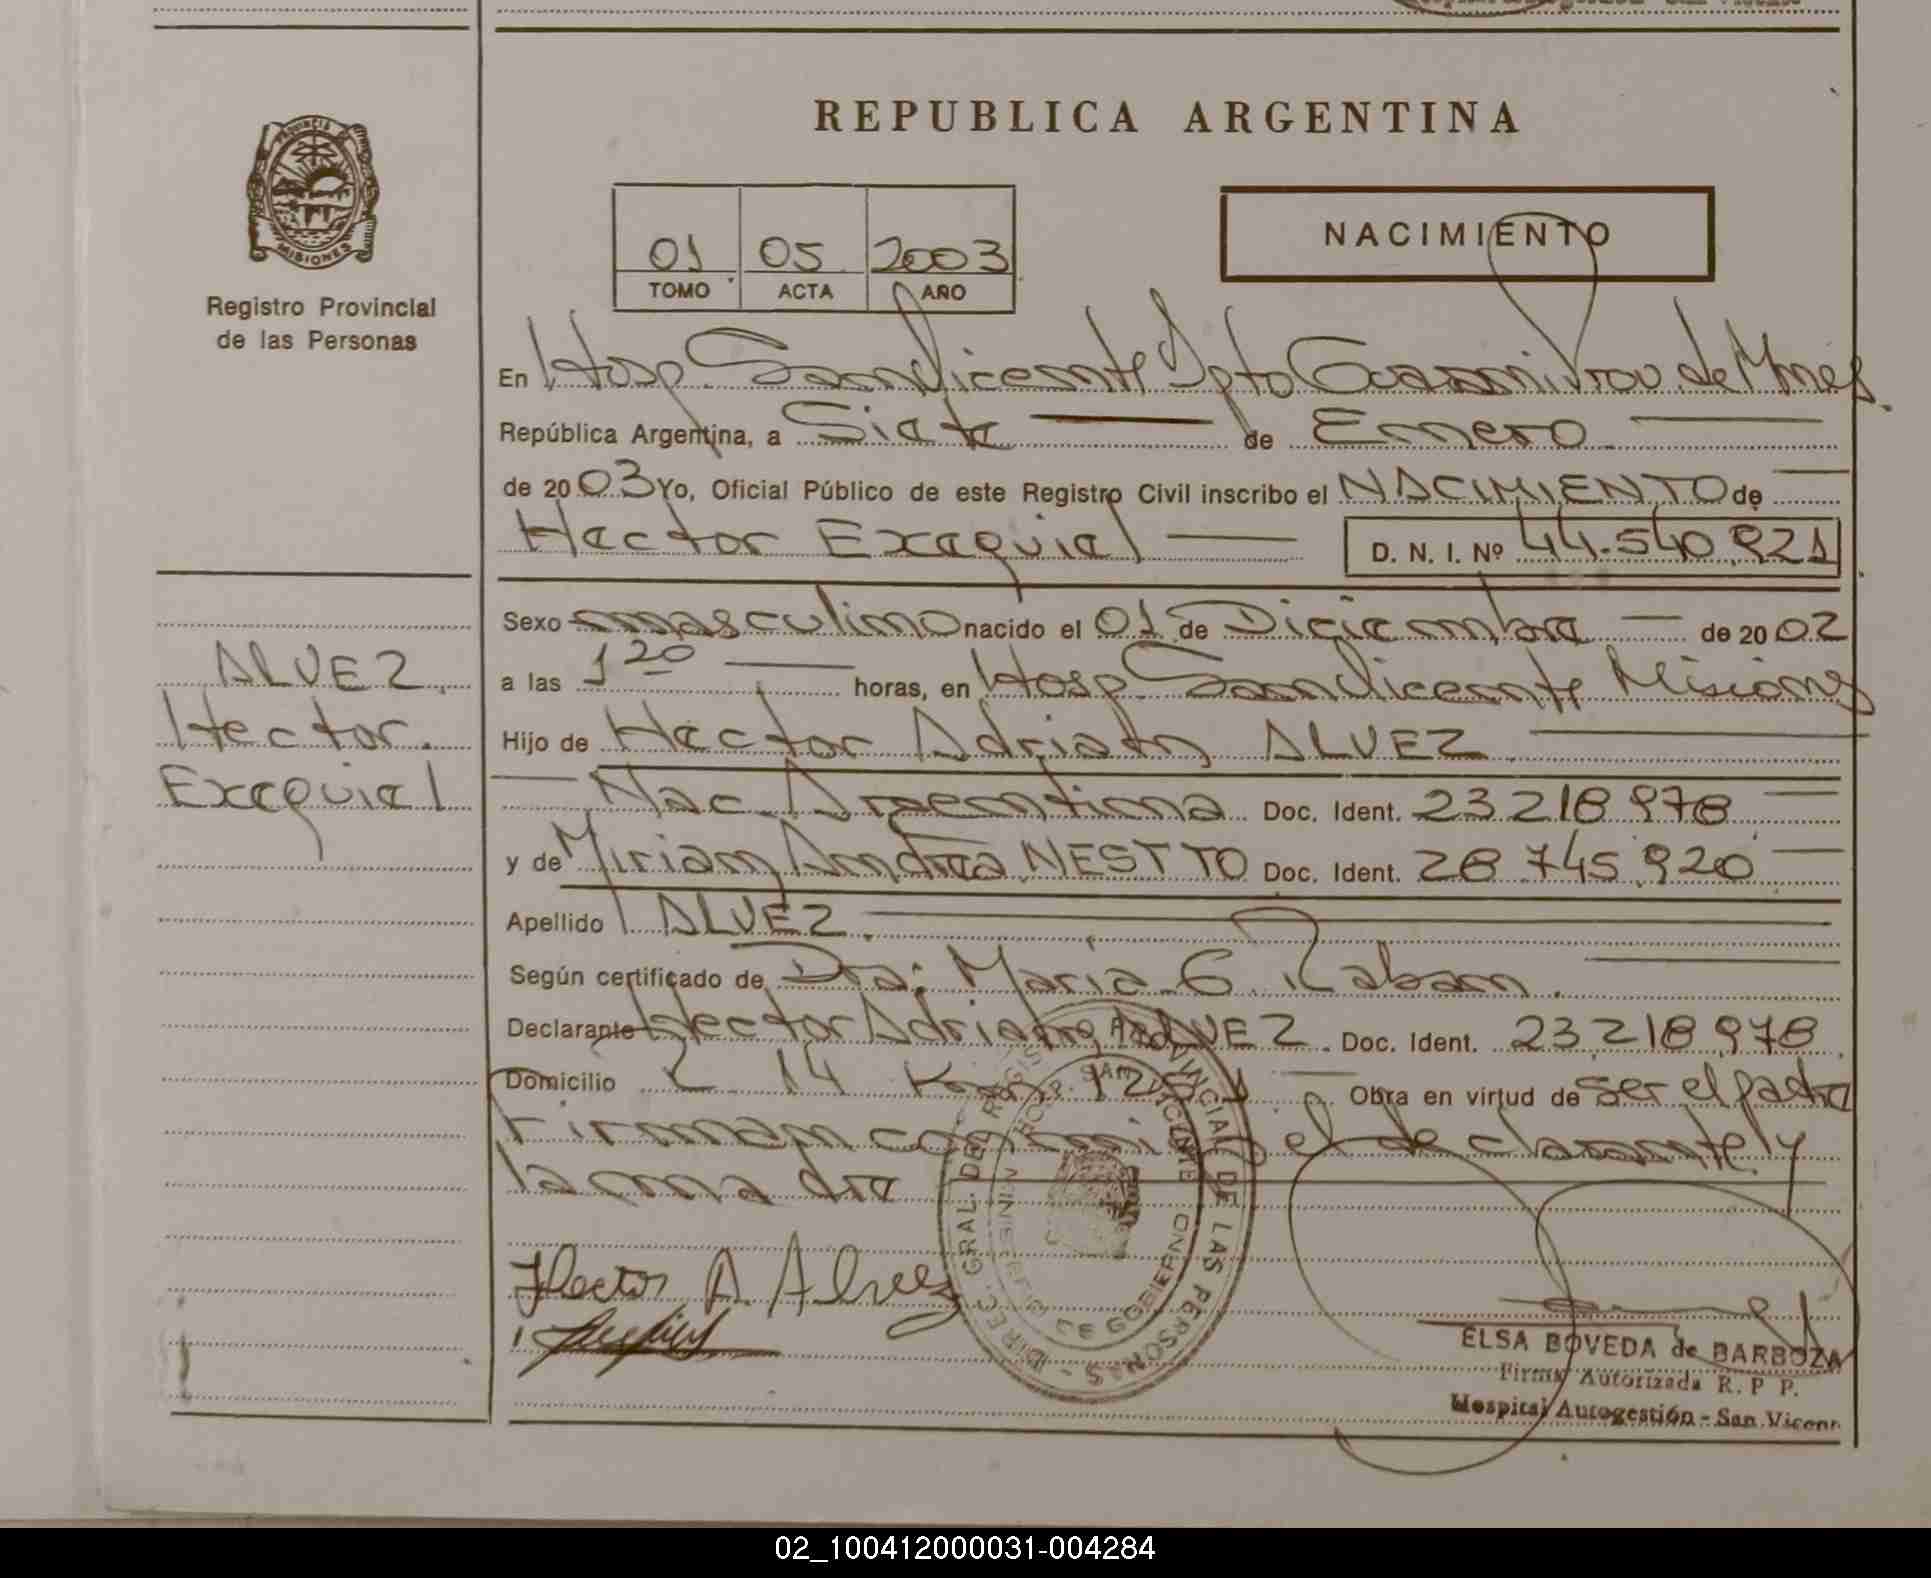 REPUBLICA ARGENTINA
PROVINCIA DE MISIONES
Registro Provincial
de las Personas
01 05 2003
TOMO ACTA AÑO
NACIMIENTO
En Hosp. San Vicente Dpto Guarani Prov de Mnes.
República Argentina, a Siete de Enero
de 2003 Yo, Oficial Público de este Registro Civil inscribo el NACIMIENTO de
Hector Exequiel D. N. I. Nº 44.540.921
Sexo masculino nacido el 01 de Diciembre de 2002
a las 1 20 horas, en Hosp. San Vicente Misiones
Hijo de Hector Adrian ALVEZ
Nac Argentina Doc. Ident. 23 218 978
y de Miriam Andrea NESTTO Doc. Ident. 28 745 920
Apellido ALVEZ.
Según certificado de Dra: Maria G.
Declarante Hector Adrian ALVEZ. Doc. Ident. 23 218 978
Domicilio 14 Km Obra en virtud de ser el padre
Firman conmigo el declarante y
la madre
ALVEZ
Hector
Exequiel
Hector A Alvez
DIREC. GRAL. DEL REGISTRO PROVINCIAL DE LAS PERSONAS
HOSP. SAN VICENTE
DE GOBIERNO
ELSA BOVEDA de BARBOZA
Firma Autorizada R. P P.
Hospital Autogestión - San Vicent
02_100412000031-004284